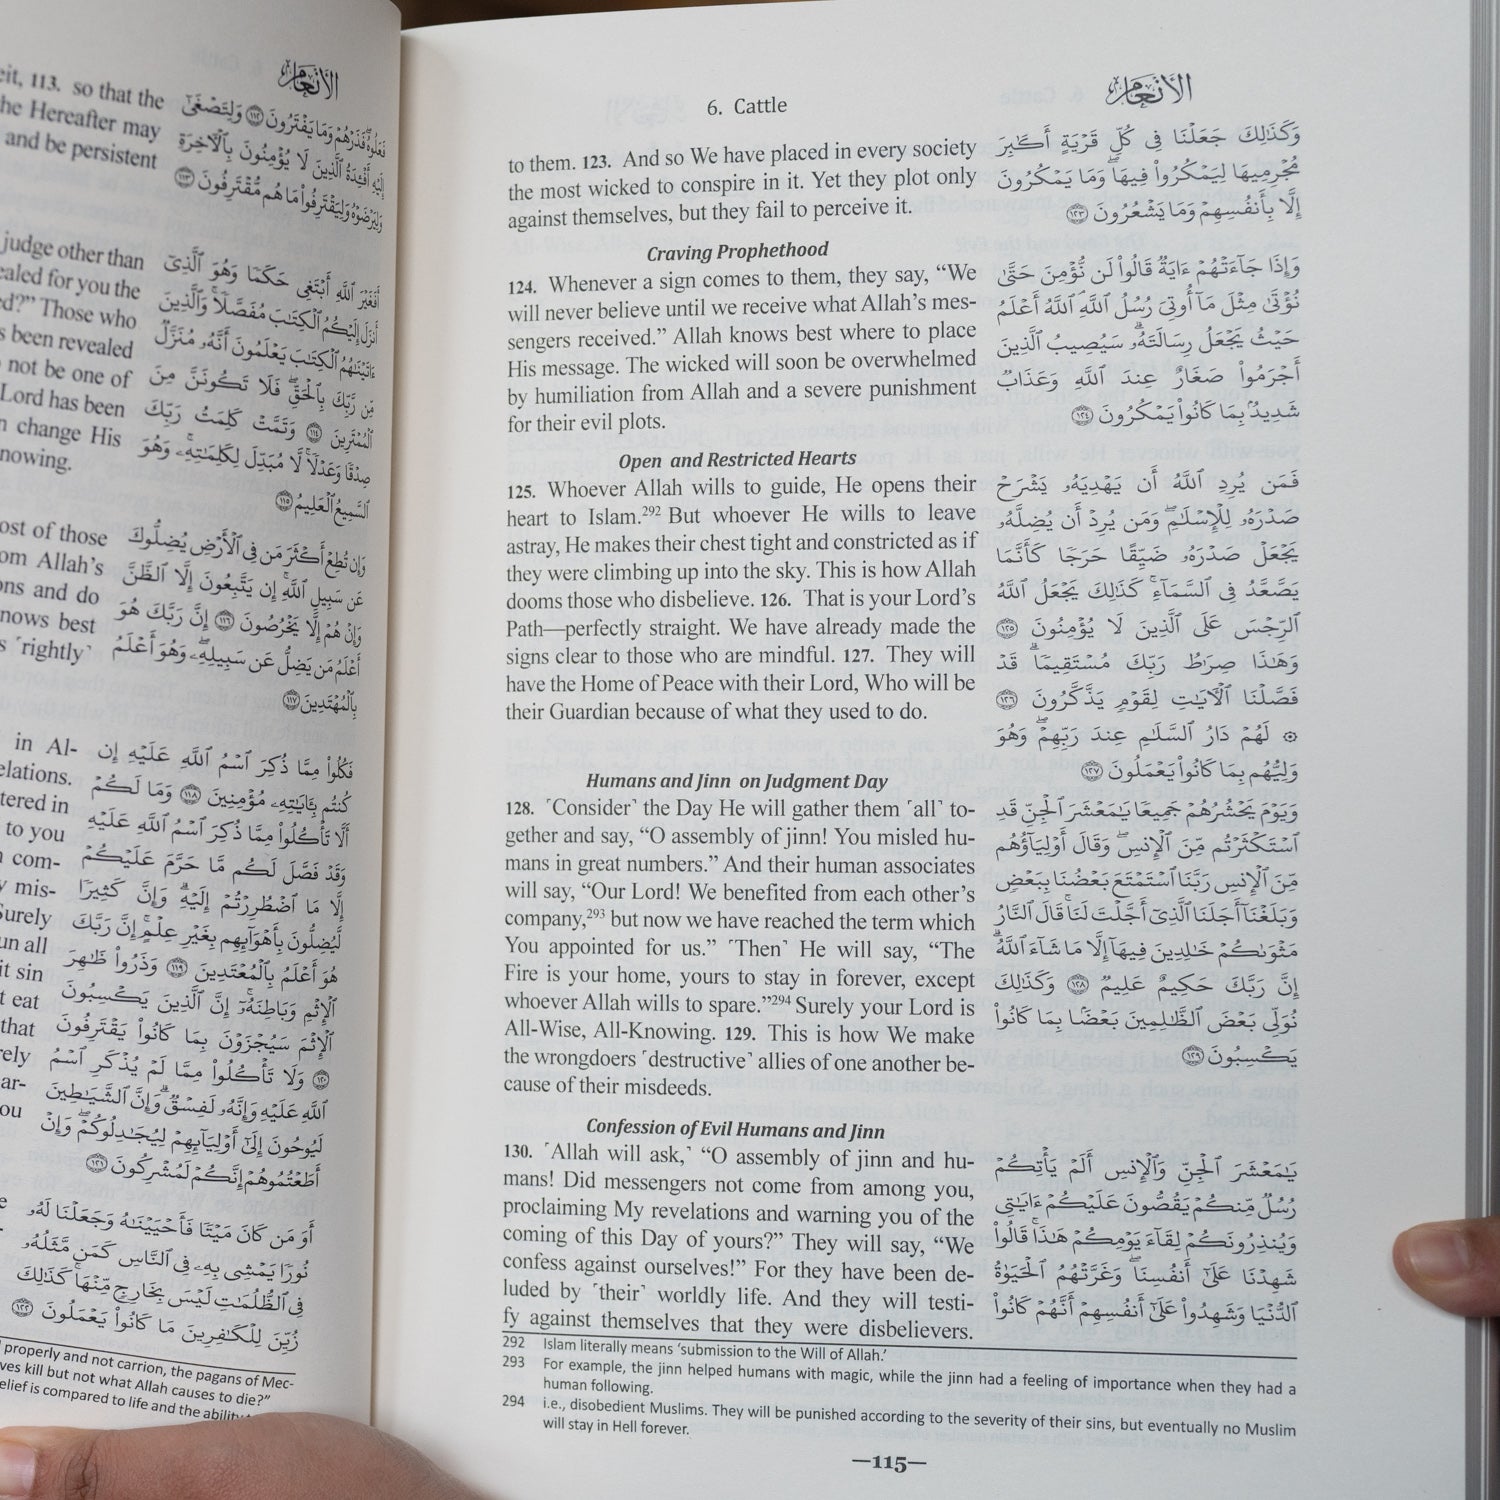 الأنعام
eit, 113. so that the
he Hereafter may
and be persistent
judge other than
ealed for you the
d?” Those who
s been revealed
not be one of
Lord has been
n change His
nowing.
ost of those
om Allah’s
ons and do
nows best
s ˹rightly˺
in Al-
elations.
tered in
to you
com-
mis-
Surely
un all
it sin
t eat
that
rely
ar-
ou
فَعَلُوهُ فَذَرْهُمْ وَمَا يَفْتَرُونَ ١١٢ وَلِتَصْغَىٰ
إِلَيْهِ أَفْـِٔدَةُ ٱلَّذِينَ لَا يُؤْمِنُونَ بِٱلْـَٔاخِرَةِ
وَلِيَرْضَوْهُ وَلِيَقْتَرِفُوا۟ مَا هُم مُّقْتَرِفُونَ ١١٣
أَفَغَيْرَ ٱللَّهِ أَبْتَغِى حَكَمًا وَهُوَ ٱلَّذِىٓ
أَنزَلَ إِلَيْكُمُ ٱلْكِتَـٰبَ مُفَصَّلًا ۚ وَٱلَّذِينَ
ءَاتَيْنَـٰهُمُ ٱلْكِتَـٰبَ يَعْلَمُونَ أَنَّهُۥ مُنَزَّلٌ
مِّن رَّبِّكَ بِٱلْحَقِّ ۖ فَلَا تَكُونَنَّ مِنَ
ٱلْمُمْتَرِينَ ١١٤ وَتَمَّتْ كَلِمَتُ رَبِّكَ
صِدْقًا وَعَدْلًا ۚ لَّا مُبَدِّلَ لِكَلِمَـٰتِهِۦ ۚ وَهُوَ
ٱلسَّمِيعُ ٱلْعَلِيمُ ١١٥
وَإِن تُطِعْ أَكْثَرَ مَن فِى ٱلْأَرْضِ يُضِلُّوكَ
عَن سَبِيلِ ٱللَّهِ ۚ إِن يَتَّبِعُونَ إِلَّا ٱلظَّنَّ
وَإِنْ هُمْ إِلَّا يَخْرُصُونَ ١١٦ إِنَّ رَبَّكَ هُوَ
أَعْلَمُ مَن يَضِلُّ عَن سَبِيلِهِۦ ۖ وَهُوَ أَعْلَمُ
بِٱلْمُهْتَدِينَ ١١٧
فَكُلُوا۟ مِمَّا ذُكِرَ ٱسْمُ ٱللَّهِ عَلَيْهِ إِن
كُنتُم بِـَٔايَـٰتِهِۦ مُؤْمِنِينَ ١١٨ وَمَا لَكُمْ
أَلَّا تَأْكُلُوا۟ مِمَّا ذُكِرَ ٱسْمُ ٱللَّهِ عَلَيْهِ
وَقَدْ فَصَّلَ لَكُم مَّا حَرَّمَ عَلَيْكُمْ
إِلَّا مَا ٱضْطُرِرْتُمْ إِلَيْهِ ۗ وَإِنَّ كَثِيرًا
لَّيُضِلُّونَ بِأَهْوَآئِهِم بِغَيْرِ عِلْمٍ ۗ إِنَّ رَبَّكَ
هُوَ أَعْلَمُ بِٱلْمُعْتَدِينَ ١١٩ وَذَرُوا۟ ظَـٰهِرَ
ٱلْإِثْمِ وَبَاطِنَهُۥٓ ۚ إِنَّ ٱلَّذِينَ يَكْسِبُونَ
ٱلْإِثْمَ سَيُجْزَوْنَ بِمَا كَانُوا۟ يَقْتَرِفُونَ
١٢٠ وَلَا تَأْكُلُوا۟ مِمَّا لَمْ يُذْكَرِ ٱسْمُ
ٱللَّهِ عَلَيْهِ وَإِنَّهُۥ لَفِسْقٌ ۗ وَإِنَّ ٱلشَّيَـٰطِينَ
لَيُوحُونَ إِلَىٰٓ أَوْلِيَآئِهِمْ لِيُجَـٰدِلُوكُمْ ۖ وَإِنْ
أَطَعْتُمُوهُمْ إِنَّكُمْ لَمُشْرِكُونَ ١٢١
أَوَمَن كَانَ مَيْتًا فَأَحْيَيْنَـٰهُ وَجَعَلْنَا لَهُۥ
نُورًا يَمْشِى بِهِۦ فِى ٱلنَّاسِ كَمَن مَّثَلُهُۥ
فِى ٱلظُّلُمَـٰتِ لَيْسَ بِخَارِجٍ مِّنْهَا ۚ كَذَٰلِكَ
زُيِّنَ لِلْكَـٰفِرِينَ مَا كَانُوا۟ يَعْمَلُونَ ١٢٢
properly and not carrion, the pagans of Mec-
ves kill but not what Allah causes to die?”
elief is compared to life and the ability
6. Cattle
الأنعام
to them. 123. And so We have placed in every society
the most wicked to conspire in it. Yet they plot only
against themselves, but they fail to perceive it.
Craving Prophethood
124. Whenever a sign comes to them, they say, “We
will never believe until we receive what Allah’s mes-
sengers received.” Allah knows best where to place
His message. The wicked will soon be overwhelmed
by humiliation from Allah and a severe punishment
for their evil plots.
Open and Restricted Hearts
125. Whoever Allah wills to guide, He opens their
heart to Islam.292 But whoever He wills to leave
astray, He makes their chest tight and constricted as if
they were climbing up into the sky. This is how Allah
dooms those who disbelieve. 126. That is your Lord’s
Path—perfectly straight. We have already made the
signs clear to those who are mindful. 127. They will
have the Home of Peace with their Lord, Who will be
their Guardian because of what they used to do.
Humans and Jinn on Judgment Day
128. ˹Consider˺ the Day He will gather them ˹all˺ to-
gether and say, “O assembly of jinn! You misled hu-
mans in great numbers.” And their human associates
will say, “Our Lord! We benefited from each other’s
company,293 but now we have reached the term which
You appointed for us.” ˹Then˺ He will say, “The
Fire is your home, yours to stay in forever, except
whoever Allah wills to spare.”294 Surely your Lord is
All-Wise, All-Knowing. 129. This is how We make
the wrongdoers ˹destructive˺ allies of one another be-
cause of their misdeeds.
Confession of Evil Humans and Jinn
130. ˹Allah will ask,˺ “O assembly of jinn and hu-
mans! Did messengers not come from among you,
proclaiming My revelations and warning you of the
coming of this Day of yours?” They will say, “We
confess against ourselves!” For they have been de-
luded by ˹their˺ worldly life. And they will testi-
fy against themselves that they were disbelievers.
وَكَذَٰلِكَ جَعَلْنَا فِى كُلِّ قَرْيَةٍ أَكَـٰبِرَ
مُجْرِمِيهَا لِيَمْكُرُوا۟ فِيهَا ۖ وَمَا يَمْكُرُونَ
إِلَّا بِأَنفُسِهِمْ وَمَا يَشْعُرُونَ ١٢٣
وَإِذَا جَآءَتْهُمْ ءَايَةٌ قَالُوا۟ لَن نُّؤْمِنَ حَتَّىٰ
نُؤْتَىٰ مِثْلَ مَآ أُوتِىَ رُسُلُ ٱللَّهِ ۘ ٱللَّهُ أَعْلَمُ
حَيْثُ يَجْعَلُ رِسَالَتَهُۥ ۗ سَيُصِيبُ ٱلَّذِينَ
أَجْرَمُوا۟ صَغَارٌ عِندَ ٱللَّهِ وَعَذَابٌ
شَدِيدٌۢ بِمَا كَانُوا۟ يَمْكُرُونَ ١٢٤
فَمَن يُرِدِ ٱللَّهُ أَن يَهْدِيَهُۥ يَشْرَحْ
صَدْرَهُۥ لِلْإِسْلَـٰمِ ۖ وَمَن يُرِدْ أَن يُضِلَّهُۥ
يَجْعَلْ صَدْرَهُۥ ضَيِّقًا حَرَجًا كَأَنَّمَا
يَصَّعَّدُ فِى ٱلسَّمَآءِ ۚ كَذَٰلِكَ يَجْعَلُ ٱللَّهُ
ٱلرِّجْسَ عَلَى ٱلَّذِينَ لَا يُؤْمِنُونَ ١٢٥
وَهَـٰذَا صِرَٰطُ رَبِّكَ مُسْتَقِيمًا ۗ قَدْ
فَصَّلْنَا ٱلْـَٔايَـٰتِ لِقَوْمٍ يَذَّكَّرُونَ ١٢٦
۞ لَهُمْ دَارُ ٱلسَّلَـٰمِ عِندَ رَبِّهِمْ ۖ وَهُوَ
وَلِيُّهُم بِمَا كَانُوا۟ يَعْمَلُونَ ١٢٧
وَيَوْمَ يَحْشُرُهُمْ جَمِيعًا يَـٰمَعْشَرَ ٱلْجِنِّ قَدِ
ٱسْتَكْثَرْتُم مِّنَ ٱلْإِنسِ ۖ وَقَالَ أَوْلِيَآؤُهُم
مِّنَ ٱلْإِنسِ رَبَّنَا ٱسْتَمْتَعَ بَعْضُنَا بِبَعْضٍ
وَبَلَغْنَآ أَجَلَنَا ٱلَّذِىٓ أَجَّلْتَ لَنَا ۚ قَالَ ٱلنَّارُ
مَثْوَىٰكُمْ خَـٰلِدِينَ فِيهَآ إِلَّا مَا شَآءَ ٱللَّهُ ۗ
إِنَّ رَبَّكَ حَكِيمٌ عَلِيمٌ ١٢٨ وَكَذَٰلِكَ
نُوَلِّى بَعْضَ ٱلظَّـٰلِمِينَ بَعْضًۢا بِمَا كَانُوا۟
يَكْسِبُونَ ١٢٩
يَـٰمَعْشَرَ ٱلْجِنِّ وَٱلْإِنسِ أَلَمْ يَأْتِكُمْ
رُسُلٌ مِّنكُمْ يَقُصُّونَ عَلَيْكُمْ ءَايَـٰتِى
وَيُنذِرُونَكُمْ لِقَآءَ يَوْمِكُمْ هَـٰذَا ۚ قَالُوا۟
شَهِدْنَا عَلَىٰٓ أَنفُسِنَا ۖ وَغَرَّتْهُمُ ٱلْحَيَوٰةُ
ٱلدُّنْيَا وَشَهِدُوا۟ عَلَىٰٓ أَنفُسِهِمْ أَنَّهُمْ كَانُوا۟
292 Islam literally means ‘submission to the Will of Allah.’
293 For example, the jinn helped humans with magic, while the jinn had a feeling of importance when they had a
human following.
294 i.e., disobedient Muslims. They will be punished according to the severity of their sins, but eventually no Muslim
will stay in Hell forever.
—115—